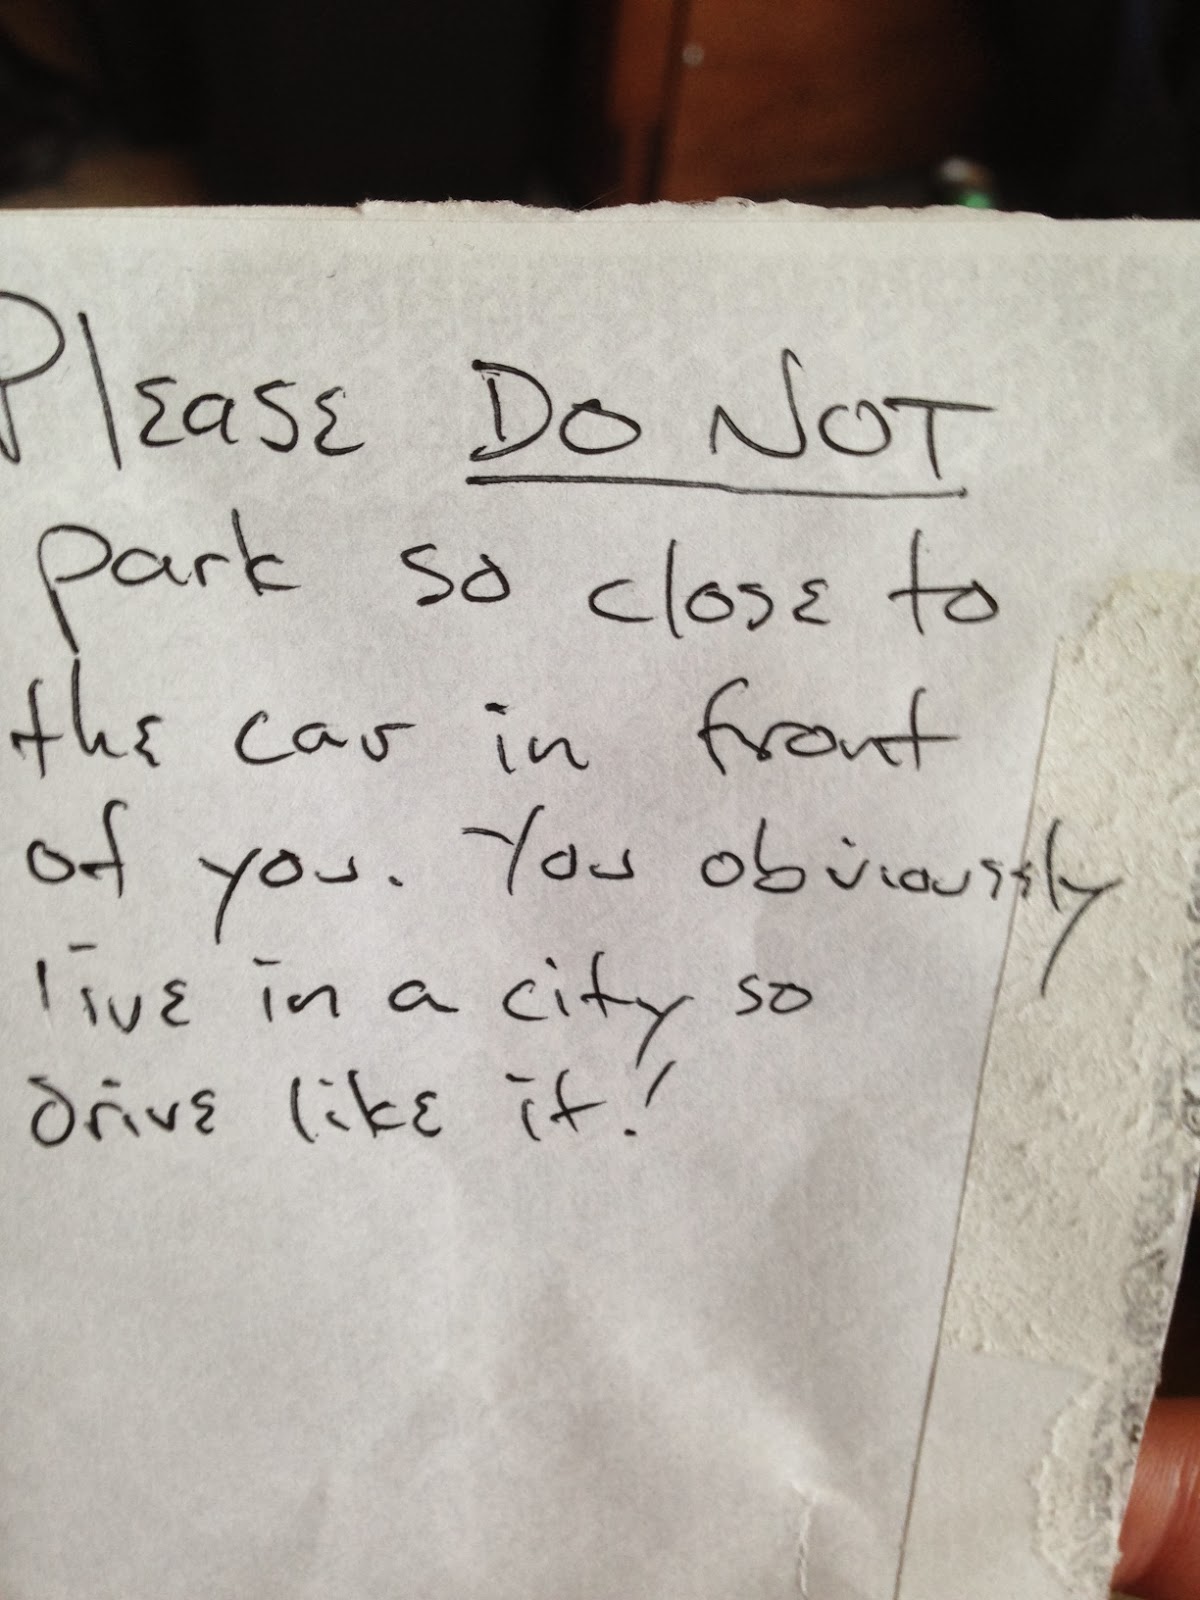 Please DO NOT
park so close to
the car in front
of you. You obviously
live in a city so
drive like it!